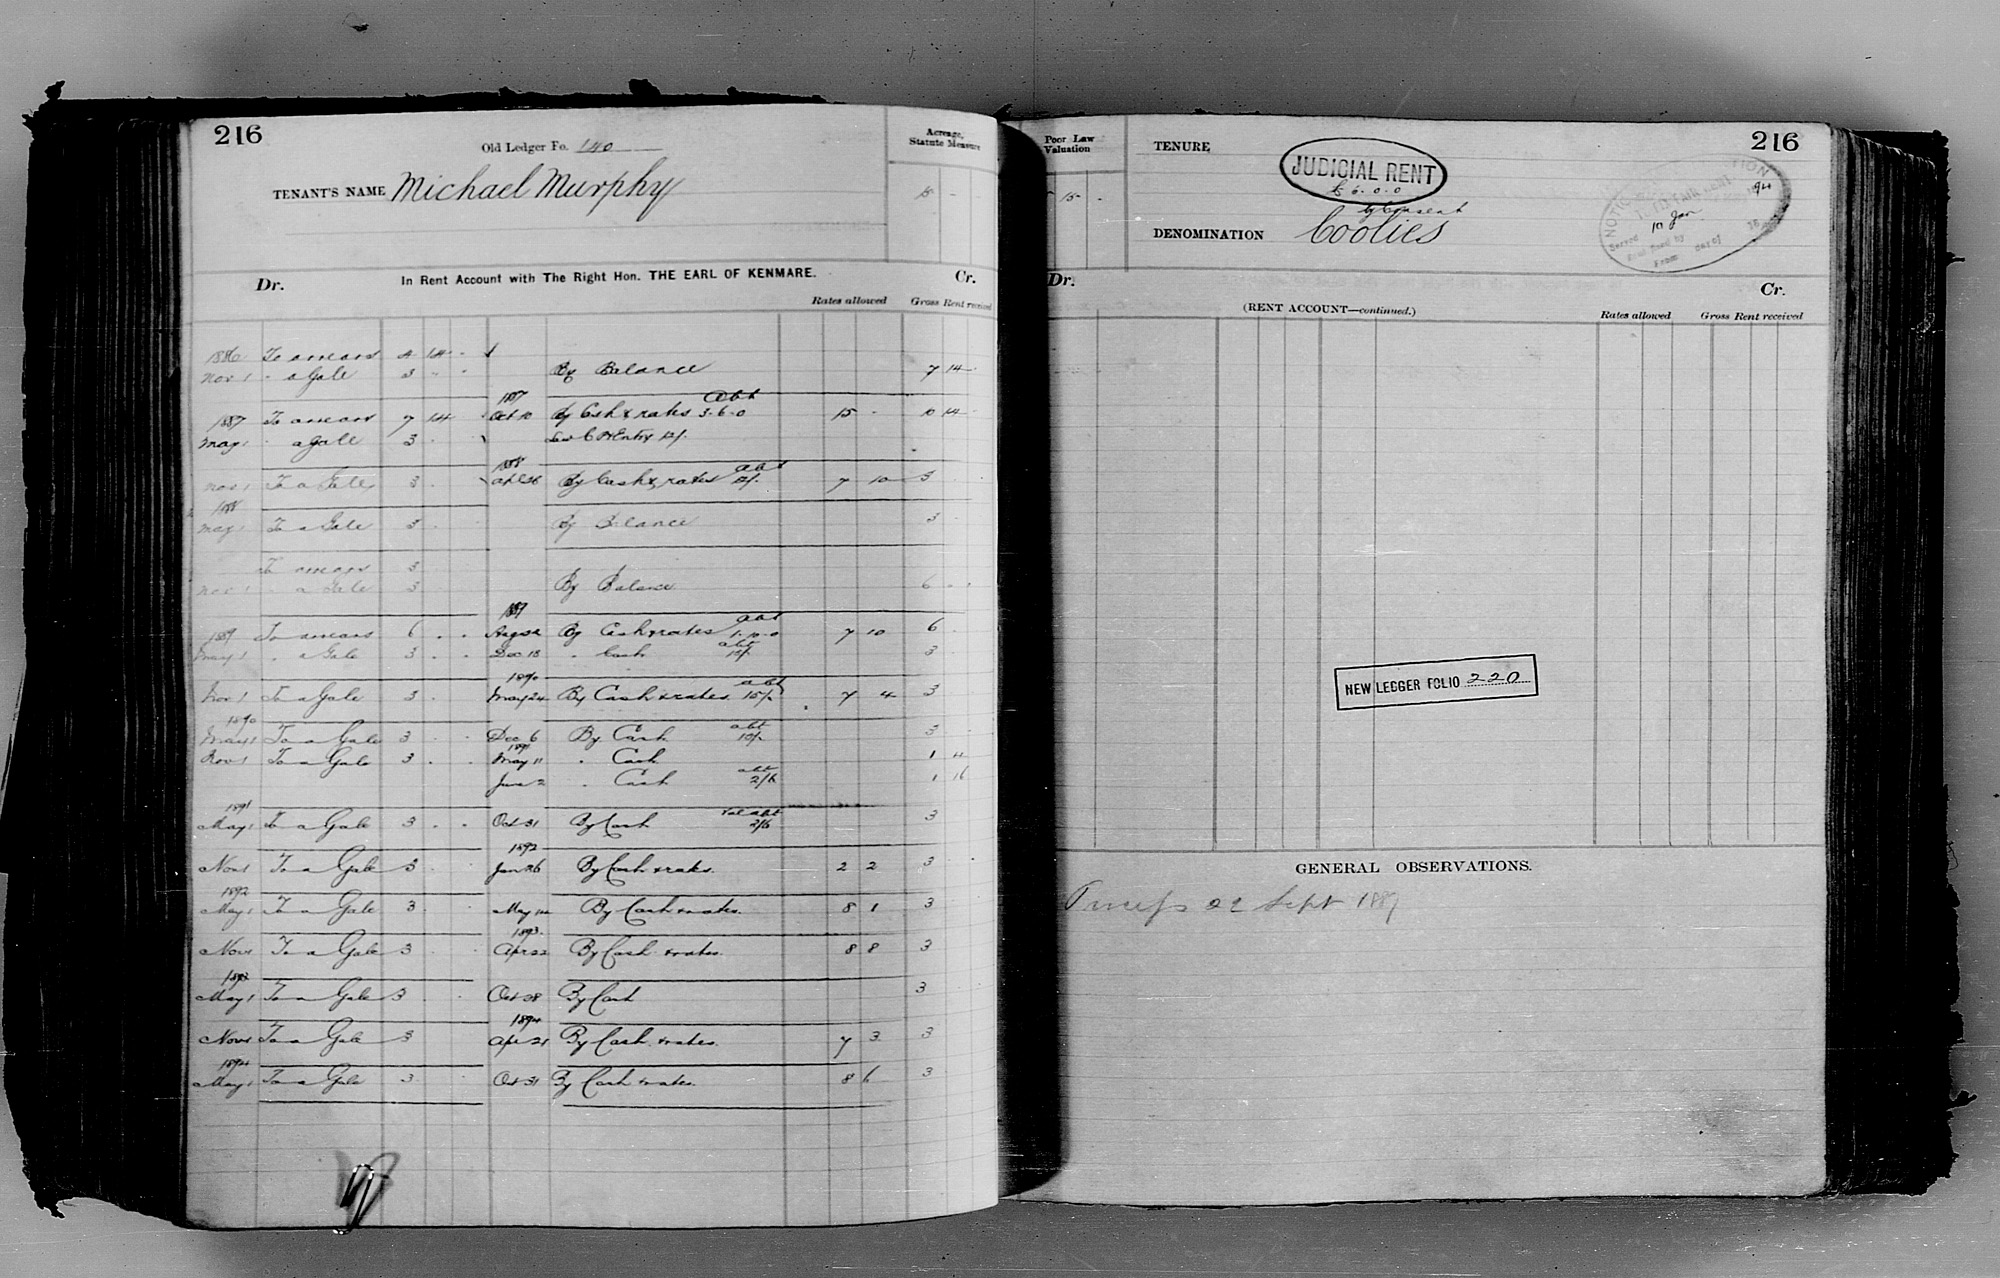 216
Old Ledger Fo. 140
TENANT'S NAME Michael Murphy
Acreage, Statute Measure
15 -
In Rent Account with The Right Hon. THE EARL OF KENMARE.
Dr. Cr.
Rates allowed Gross Rent received
1886 To arrears 4 14 -
Nov 1 " a Gale 3 " - By Balance 7 14
1887 abt
1887 To arrears 7 14 Oct 10 By Cash & rates 3-6-0 15 - 10 14
May 1 " a Gale 3 -
1888 abt
Nov 1 To a Gale 3 By Cash & rates 7 10 3
1888
May 1 To a Gale 3 - By Balance 3 -
To arrears 3
Nov 1 " a Gale 3 By Balance 6 - -
1889 abt
1889 To arrears 6 - - By Cash & rates 1-10-0 7 10 6
May 1 " a Gale 3 - - Dec 18 " Cash abt 15/- 3 -
1890 abt
Nov 1 To a Gale 3 - May 24 By Cash & rates 15/- 7 4 3
1890
May 1 To a Gale 3 - - Dec 6 By Cash abt 3 -
1891
Nov 1 To a Gale 3 - - May 11 " Cash 1 4
June 2 " Cash abt 2/6 1 16
1891
May 1 To a Gale 3 - - Oct 31 By Cash abt 2/6 3
1892
Nov 1 To a Gale 3 - Jan 26 By Cash & rates. 2 2 3 -
1892
May 1 To a Gale 3 - May 14 By Cash & rates. 8 1 3
1893
Nov 1 To a Gale 3 - Apr 22 By Cash & rates. 8 8 3
1893
May 1 To a Gale 3 - - Oct 28 By Cash 3
1894
Nov 1 To a Gale 3 Apr 21 By Cash & rates. 7 3 3
1894
May 1 To a Gale 3 - Oct 31 By Cash & rates. 8 6 3
216
Poor Law Valuation
15 -
TENURE
JUDICIAL RENT
£6.0.0
by Consent
DENOMINATION Coolies
NOTICE
Served 10 Jan 94
day of
From
Dr. Cr.
(RENT ACCOUNT—continued.)
Rates allowed Gross Rent received
NEW LEDGER FOLIO 220
GENERAL OBSERVATIONS.
Sept 1887